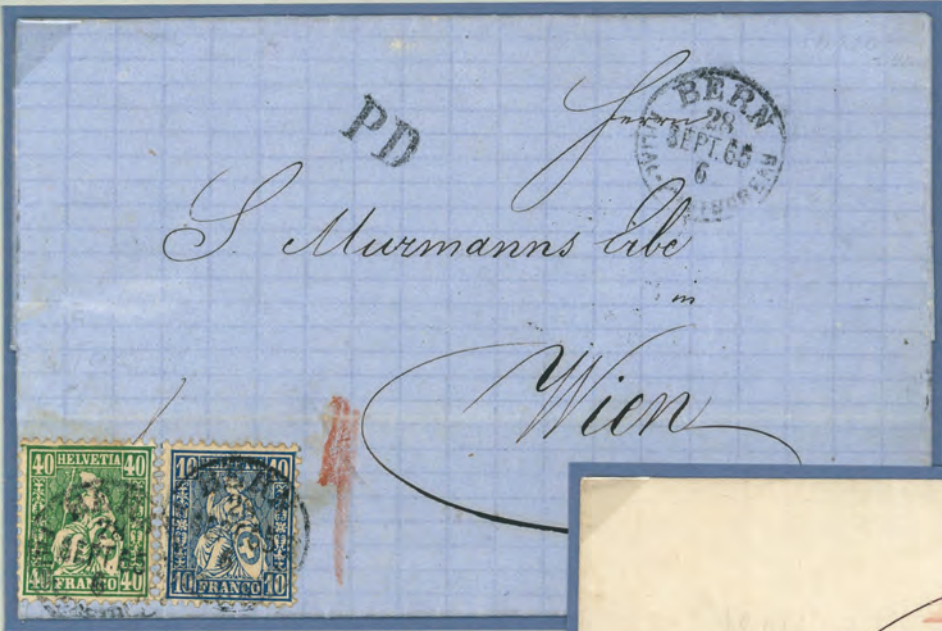 PD
BERN
28
SEPT. 65
6
Herrn
S. Murmanns Erbe
in
Wien
40 HELVETIA 40
SEPT
6
40 FRANCO 40
10 HELVETIA 10
10 FRANCO 10